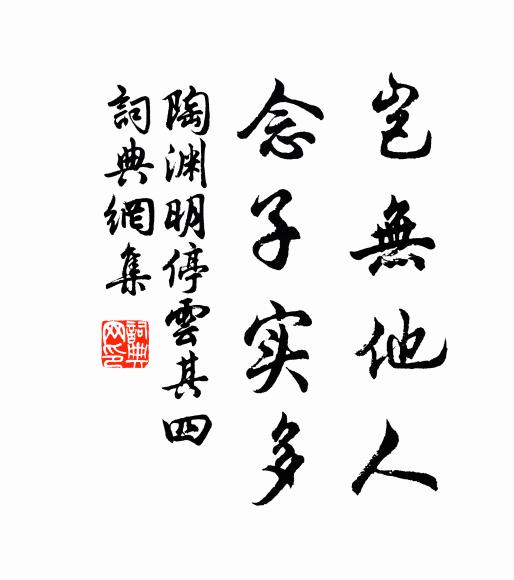 岂無他人
念子实多
陶渊明停雲其四
詞典網集
詞典网印